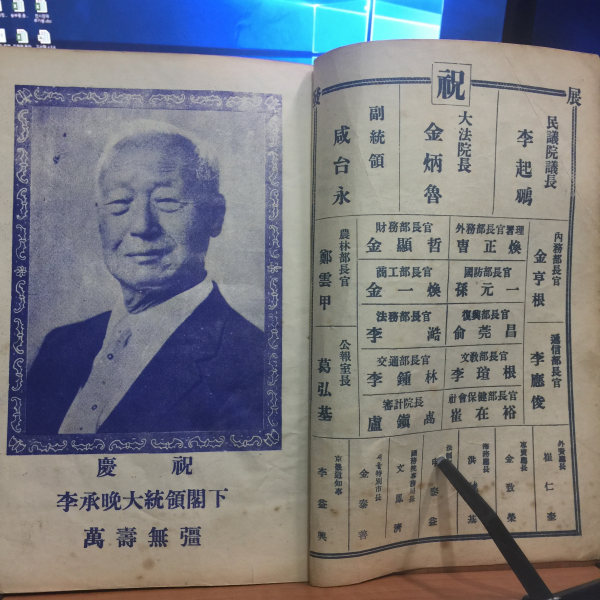 祝慶
下閣領統大晩承李
彊無壽萬
祝
展
發
民議院議長
李起鵬
大法院長
金炳魯
副統領
咸台永
內務部長官
金亨根
遞信部長官
李應俊
外務部長官署理
曺正煥
國防部長官
孫元一
復興部長官
兪莞昌
文教部長官
李瑄根
社會保健部長官
崔在裕
財務部長官
金顯哲
商工部長官
金一煥
法務部長官
李澔
交通部長官
李鍾林
審計院長
盧鎭卨
農林部長官
鄭雲甲
公報室長
葛弘基
外資廳長
崔仁泰
專賣廳長
金致榮
洪基
泰益
國務院事務局長
文鳳濟
서울特別市長
金泰善
京畿道知事
李益興